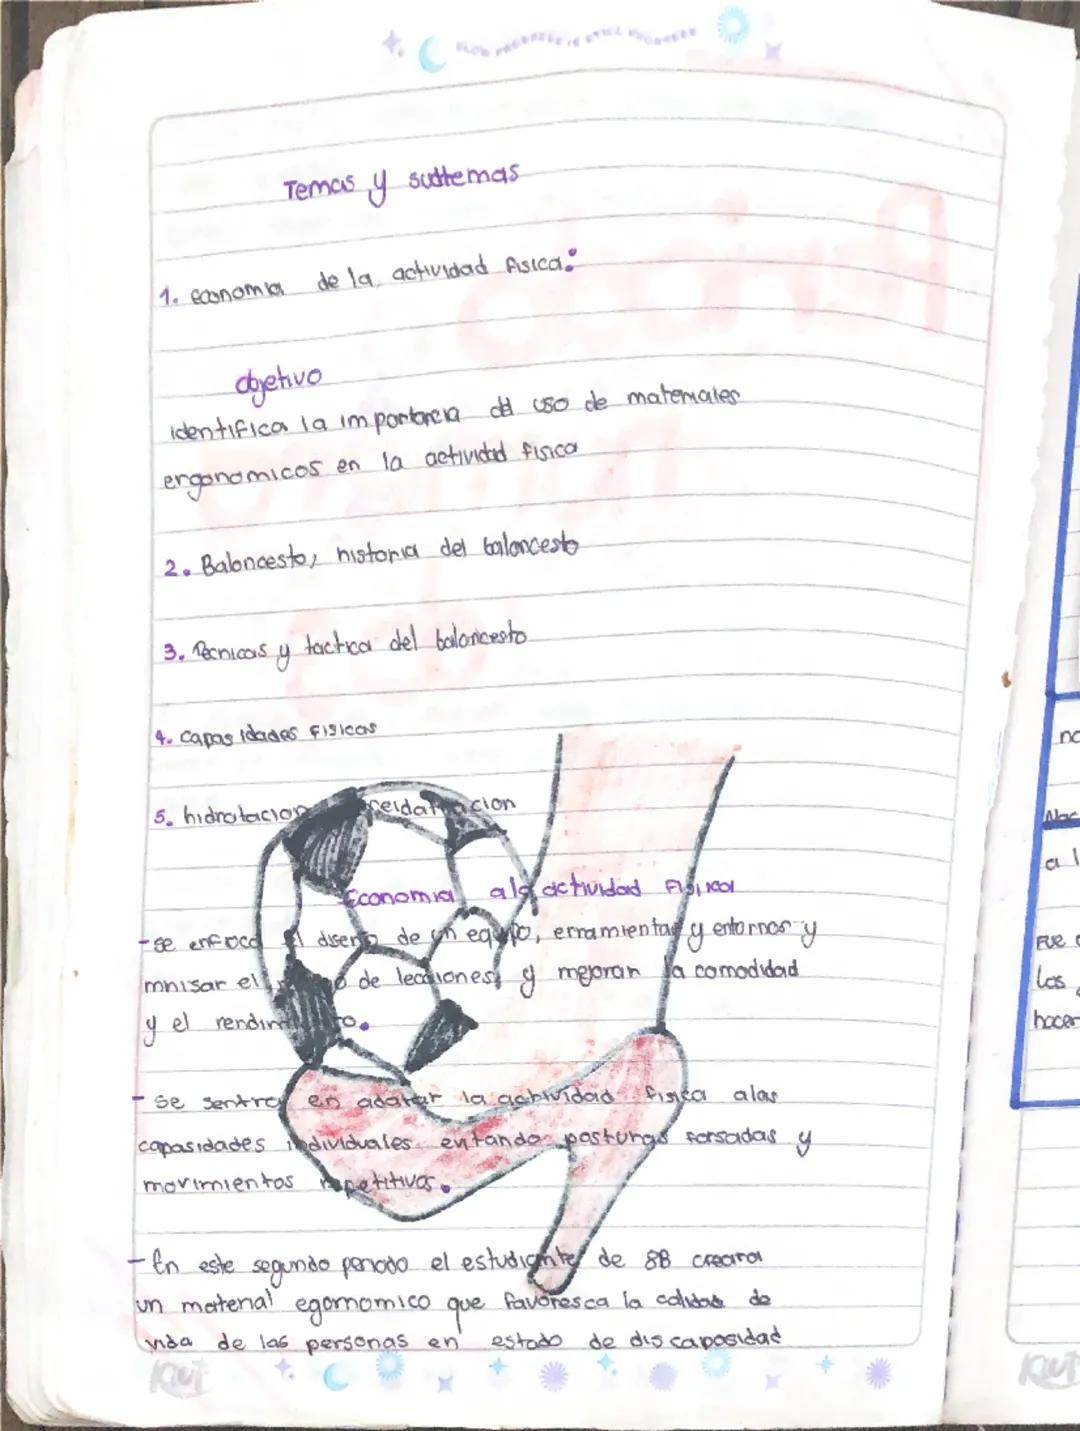 SLOW PROGRESS IS STILL PROGRESS
Temas y suttemas
1. economia de la actividad fisica:
objetivo
identifica la importancia del uso de materiales
ergonomicos en la actividad fisica
2. Baloncesto, historia del baloncesto
3. Tecnicas y tactica del baloncesto
4. capas idades fisicas
5. hidratacion
Economia ala actividad fisica
- se enfoca el diseño de un equipo, erramientas y entornos y
mnisar el de lecciones y mejoran la comodidad
y el
- se sentra en adatar la actividad fisica alas
capasidades individuales evitando posturas forsadas y
movimientos repetitivos.
- En este segundo periodo el estudiante de 8B creara
un material egornomico que favoresca la calidad de
vida de las personas en estado de discapasidad
Kiut
no
a l
Fue
los
hacer
Kiut